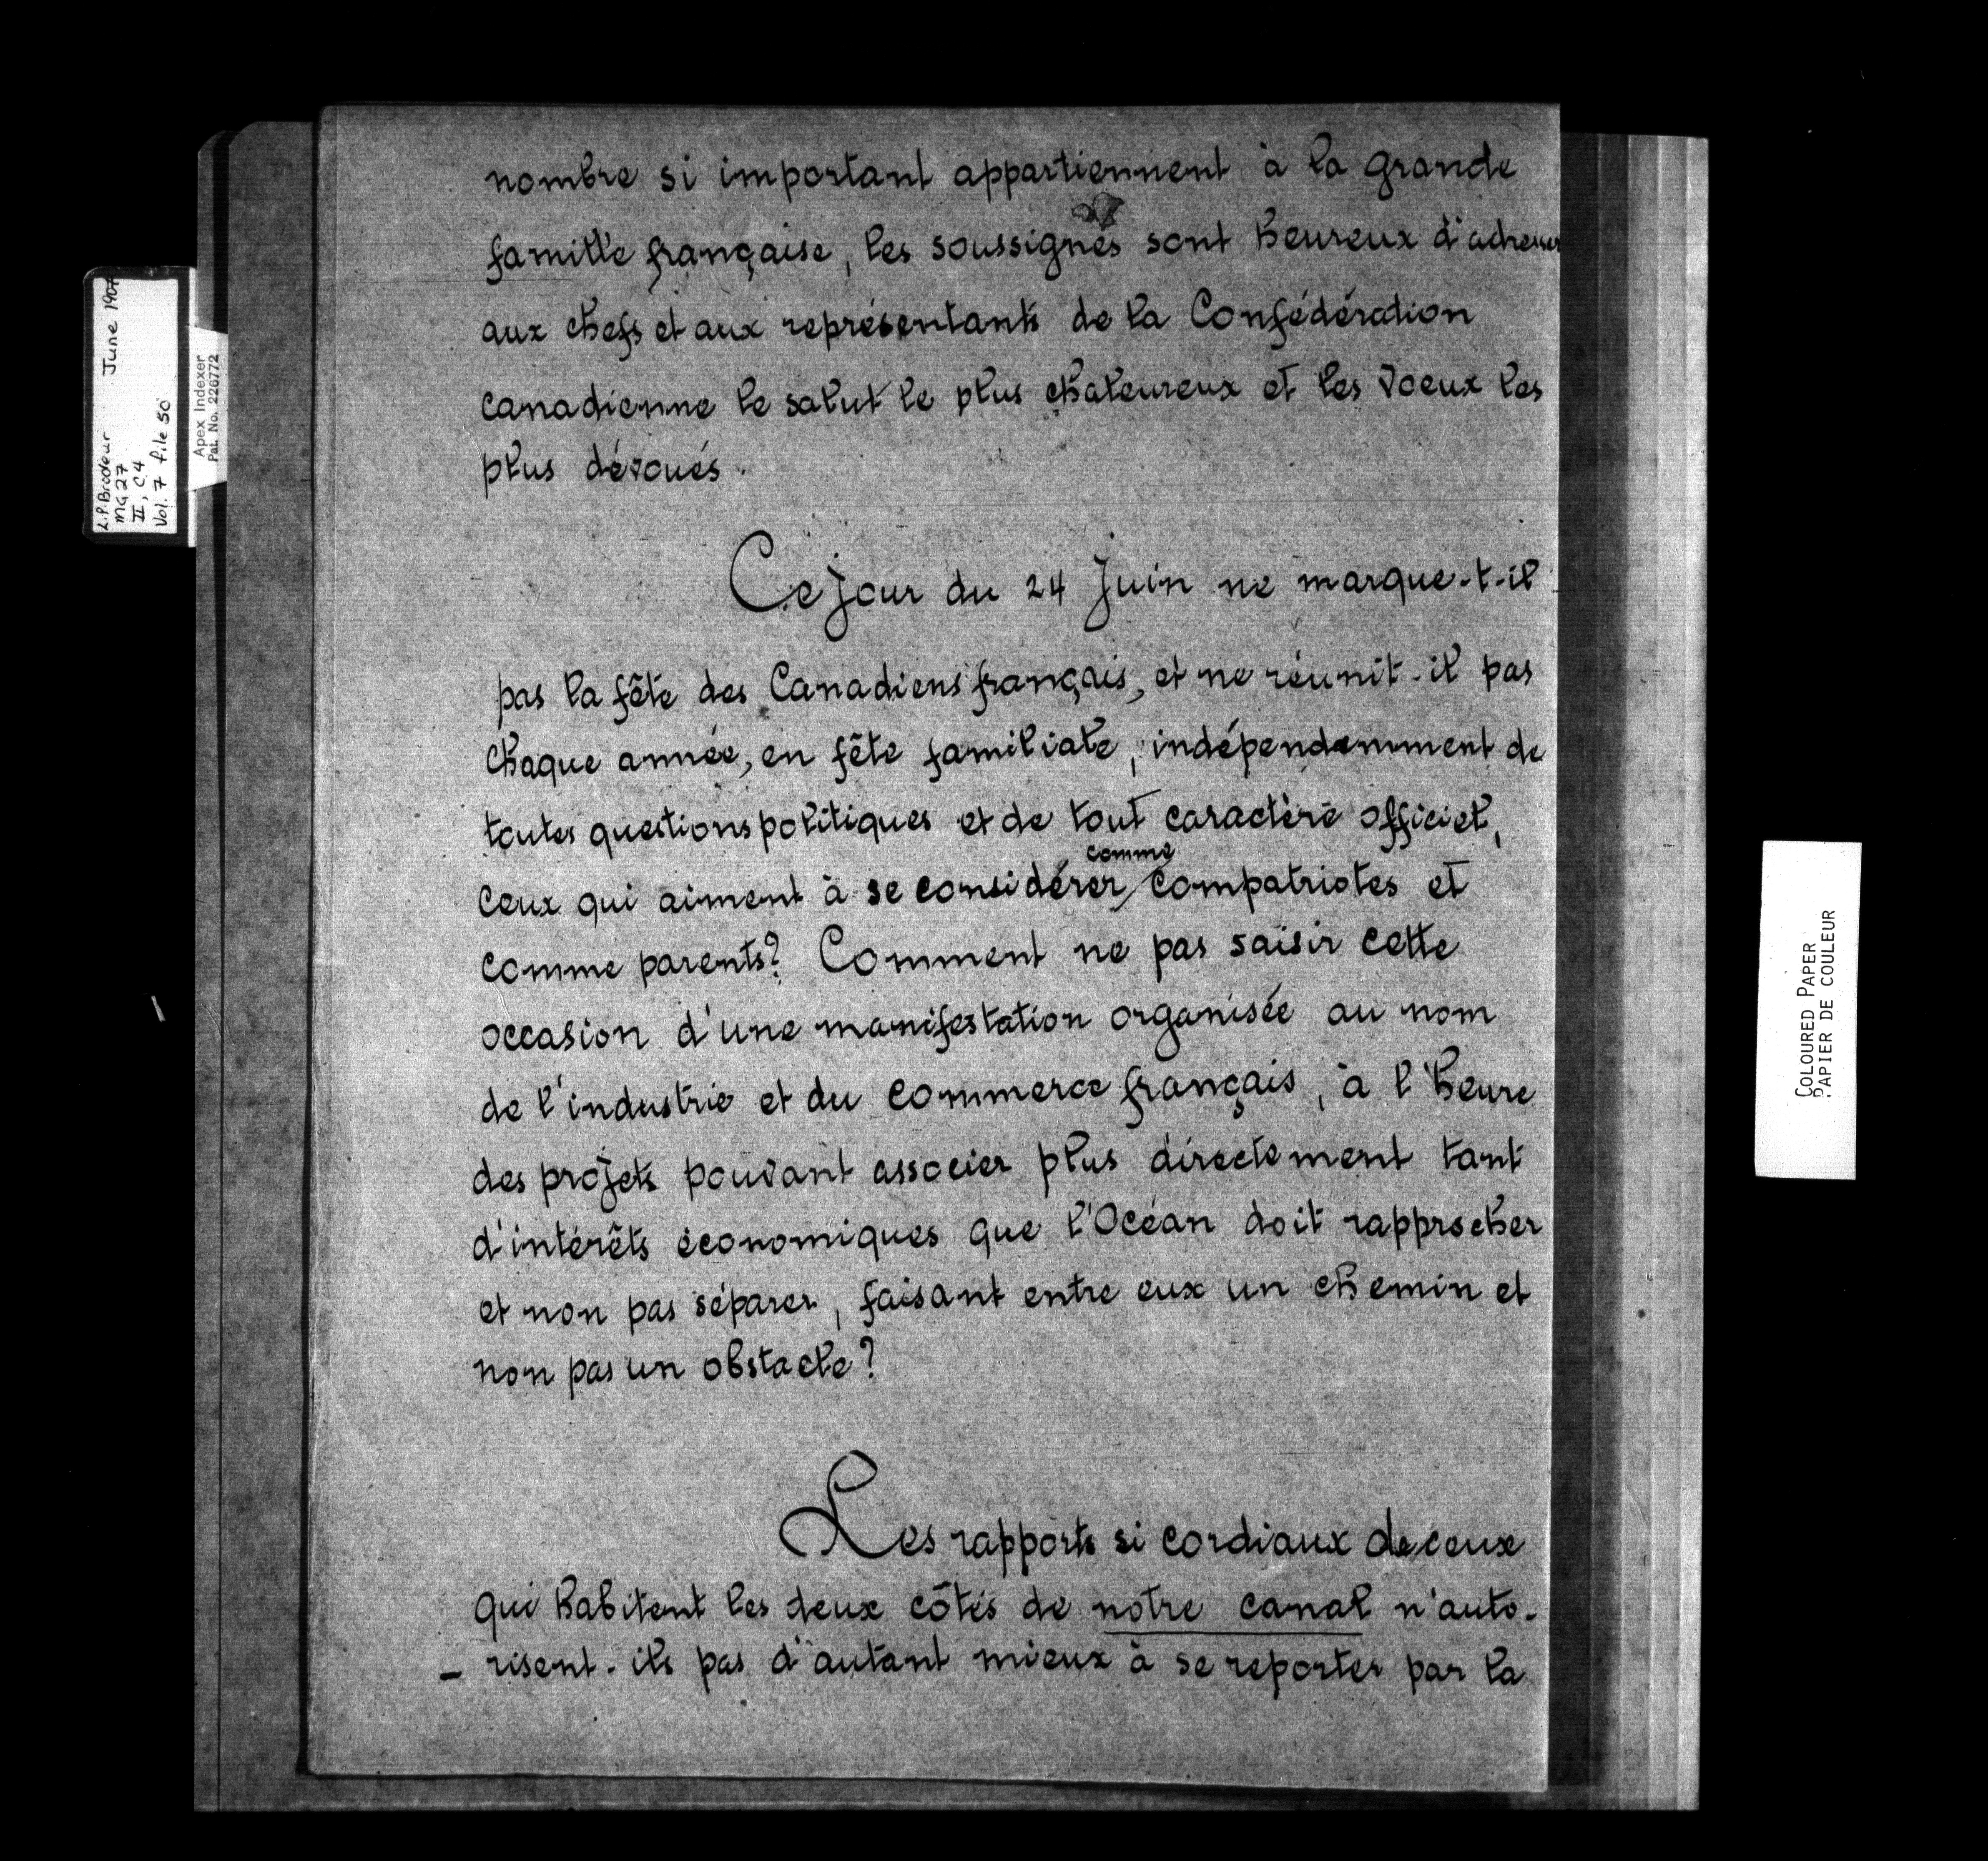 nombre si important appartiennent à la grande
famille française, les soussignés sont heureux d'adresser
aux chefs et aux représentants de la Confédération
canadienne le salut le plus chaleureux et les voeux les
plus dévoués.
Ce jour du 24 Juin ne marque-t-il
pas la fête des Canadiens français, et ne réunit-il pas
chaque année, en fête familiale, indépendamment de
toutes questions politiques et de tout caractère officiel,
ceux qui aiment à se considérer comme compatriotes et
comme parents? Comment ne pas saisir cette
occasion d'une manifestation organisée au nom
de l'industrie et du commerce français, à l'heure
des projets pouvant associer plus directement tant
d'intérêts économiques que l'Océan doit rapprocher
et non pas séparer, faisant entre eux un chemin et
non pas un obstacle?
Les rapports si cordiaux de ceux
qui habitent les deux côtés de notre canal n'auto-
- risent-ils pas d'autant mieux à se reporter par la
L.P. Brodeur June 1907
MG27
II, C4
Vol. 7 file 50
Apex Indexer
Pat. No. 2226772
COLOURED PAPER
PAPIER DE COULEUR